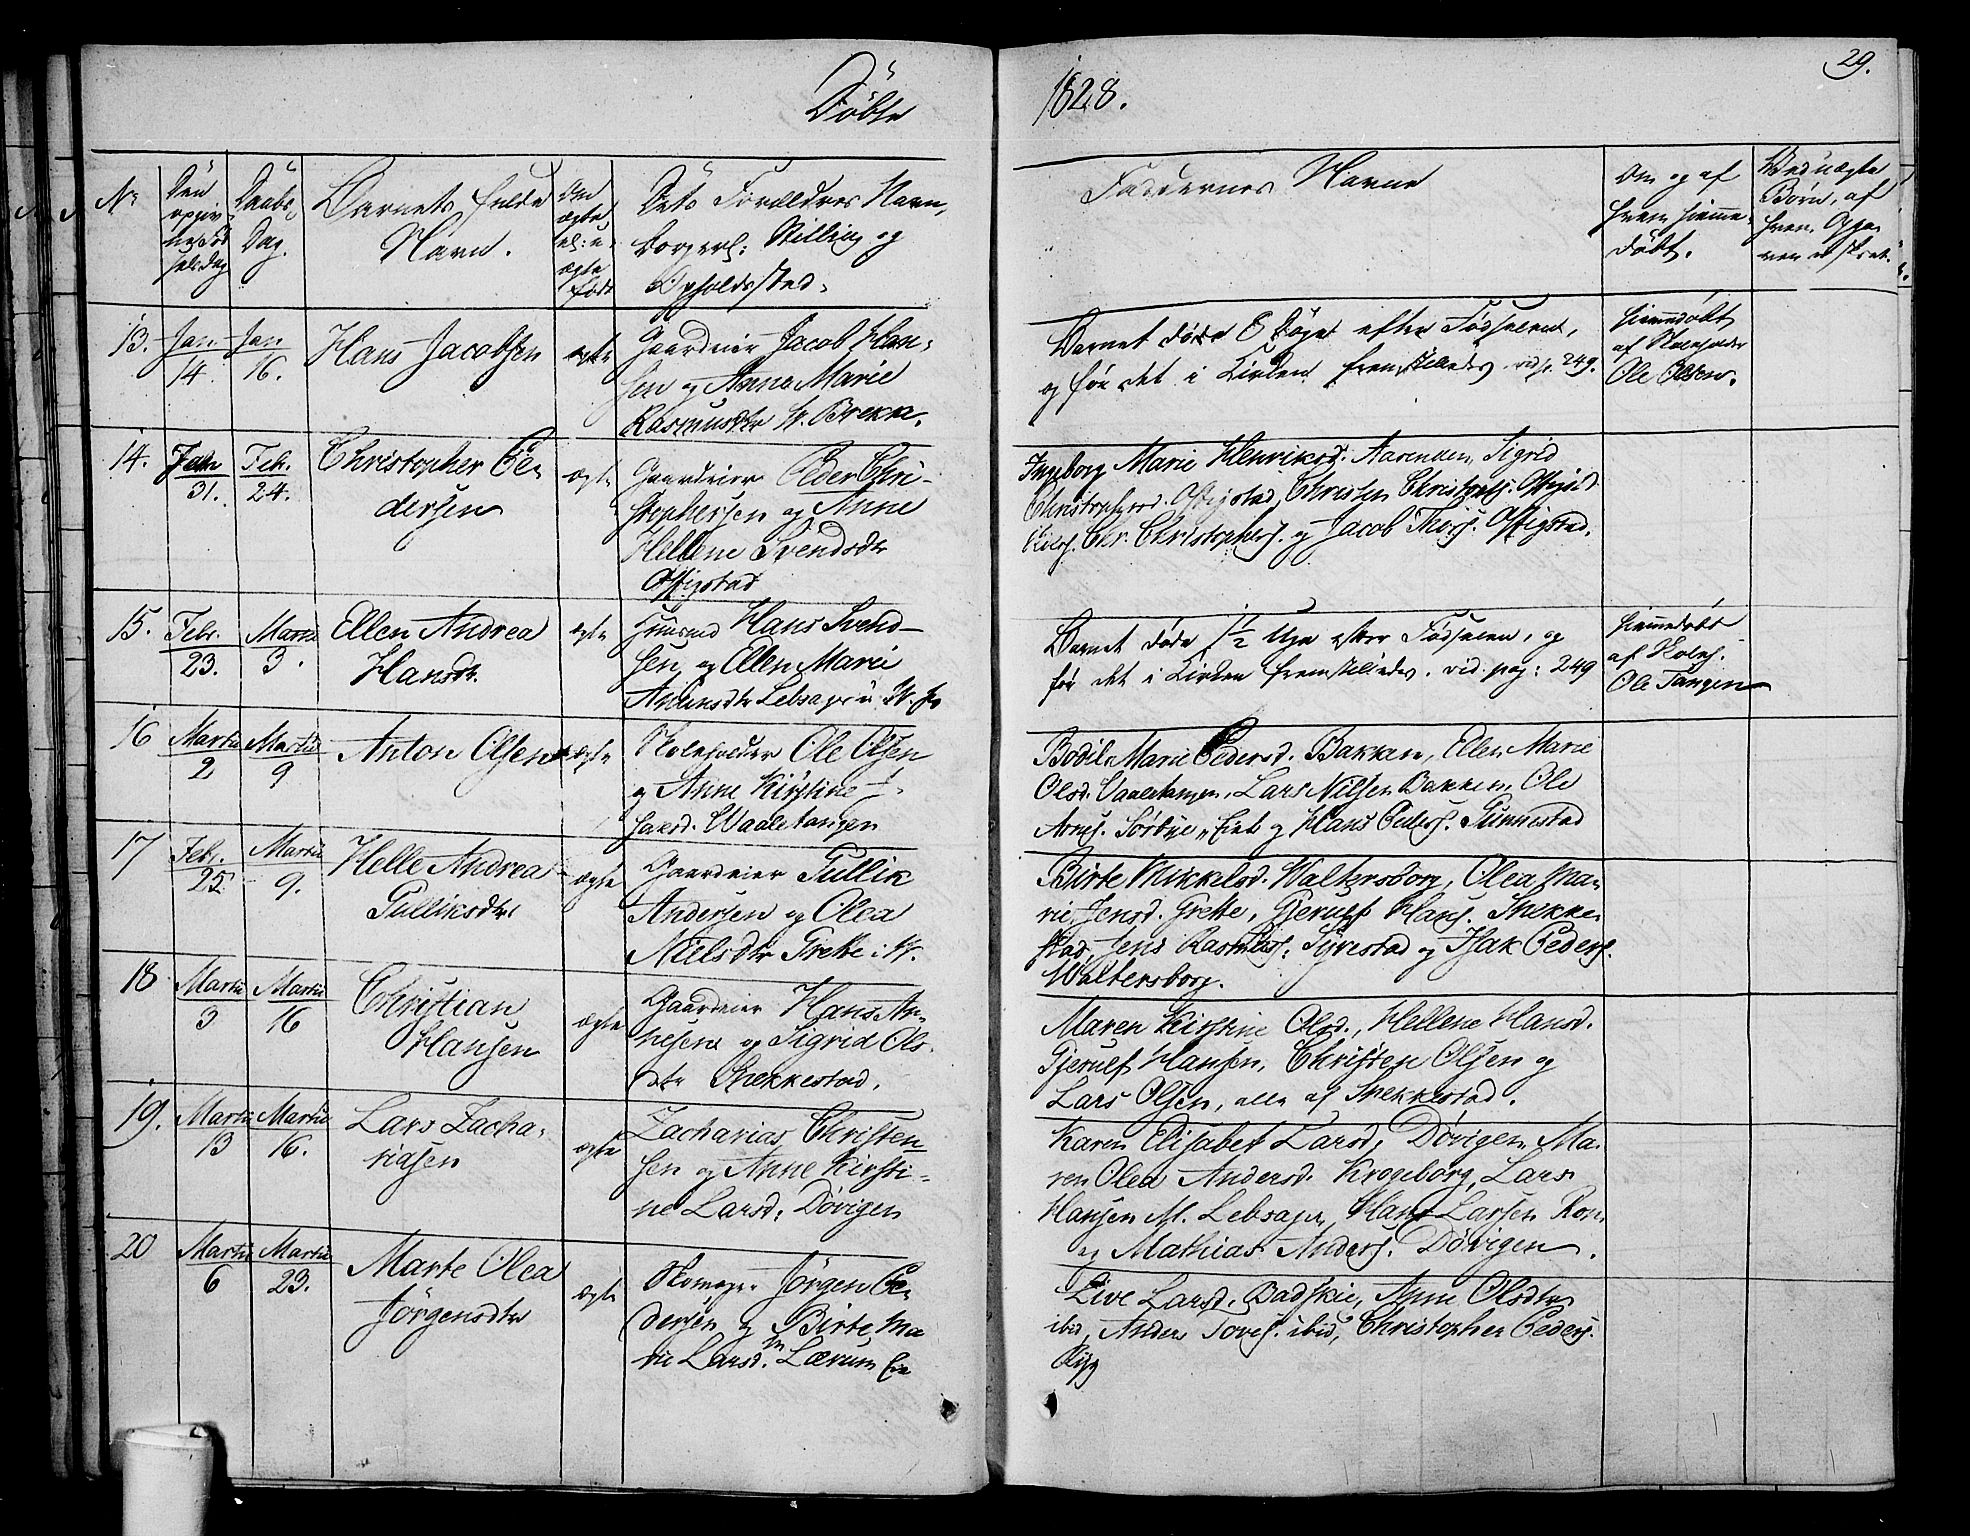 Döbte
1828.
29.
No
Den opgivne Födselsdag
Daabs-Dag.
Barnets fulde Navn.
Om ægte el: uægte födt
Dets Forældres Navn, Borgerl: Stilling og Opholdssted.
Faddernes Navne
Om og af hvem hjemmedöbt.
Ved uægte Börn, af hvem
13. Jan. 14. Jan 16. Hans Jacobsen ægte
Gaardeier Jacob Han-
sen og Anne Marie
Rasmusdtr N. Brekke.
Barnet döde 8 Döge efter Födselen,
og för det i Kirken fremstilledes vid p. 249.
hjemmedöbt
af Skoleholder
Ole Olsen.
14. Jan 31. Feb. 24. Christopher Pe-
dersen
ægte
Gaardeier Peder Chri-
stophersen og Anne
Hellene Svendsdtr
Offigstad
Ingeborg Marie Henriksd. Aarenden, Sigrid
Christophersd. Offigstad, Christen Christophs. Offigstd.
Christophers. og Jacob Thors. Offigstad.
15. Febr. 23. Martii 3. Ellen Andrea
Hansdtr.
ægte
Huusmd Hans Svend-
sen og Ellen Marie
Andersdtr Lebsager
Barnet döde 1 1/2 Uge efter Födselen, og
för det i Kirken fremstilledes. vid. pag: 249
hjemmedöbt
af Skoleh.
Ole Tangen
16 Martii 2 Martii 9 Anton Olsen ægte
Skoleholder Ole Olsen
og Anne Kirstine I-
saksd. Waaletangen
Bodil Marie Pedersd. Bakken, Ellen Marie
Olsd. Vaaletangen, Lars Nilsen Bakken, Ole
Arnes. Sörbye, Eiet og Hans Peders. Gunnestad
17 Febr. 25. Martii 9. Helle Andrea
Gulliksdtr
ægte
Gaardeier Gullik
Andersen og Olea
Nielsdtr Grette i N.
Birte Mikkelsd. Waltersborg, Olea Ma-
rie Jensd. Grette, Gjerulf Hans. Snekke-
stad, Jens Rasmuss. Syrestad og Isak Peders.
Waltersborg.
18 Martii 3 Martii 16 Christian
Hansen
ægte
Gaardeier Hans An-
nesen og Sigrid Ols-
dtr Snekkestad.
Maren Kirstine Olsd., Hellene Hansd.
Gjerulf Hansen, Christen Olsen og
Lars Olsen, alle af Snekkestad.
19. Martii 13 Martii 16. Lars Zacha-
riasen
ægte
Zacharias Christen-
sen og Anne Kirsti-
ne Larsd. Dövigen
Karen Elisabet Larsd, Dövigen, Ma-
ren Olea Andersd. Krogeborg, Lars
Hansen M. Lebsager, Hans Larsen
og Mathias Anders. Dövigen.
20 Martii 6 Martii 23. Marte Olea
Jörgensdtr
ægte
Skomager Jörgen Pe-
dersen og Birte Ma-
rie Larsd. Lærum Eie
Live Larsd. Badskie, Anne Olsdtr
ibid, Anders Toves. ibid, Christopher Peders.